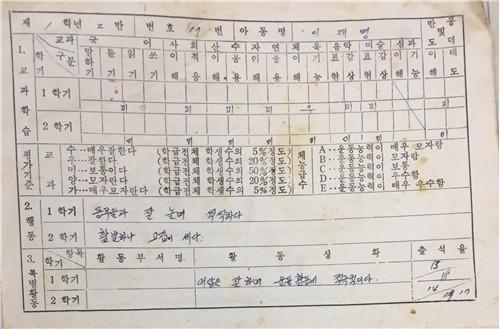 제 1 학년 2 반 번호 17 번 아동명 이재명
교과 국어 사회 산수 자연 체육 음악 미술 실과 반공 및 도덕
학기 구분 말하기 듣기 읽기 쓰기 이해 적용 이해 적용 이해 기능 표현 감상 표현 감상 이해 기능 이해 태도
1. 교과학습
1 학기
미 미 미 미 미 우 미 미
2 학기
평가기준 교과
수…매우잘한다 (학급전체 학생수의 5%정도)
우…잘한다 (학급전체 학생수의 20%정도)
미…보통이다 (학급전체 학생수의 50%정도)
양…모자란다 (학급전체 학생수의 20%정도)
가…매우모자란다 (학급전체 학생수의 5%정도)
체능급수
A…운동능력이 매우 모자람
B…운동능력이 모자람
C…운동능력이 보통
D…운동능력이 우수함
E…운동능력이 매우 우수함
2. 행동
1 학기 동무들과 잘 놀며 씩씩하다
2 학기 활발하나 고집이 세다.
3. 특별활동
학기 항목 활동부서명 활동상황 출석율
1 학기 대답을 잘 하며 운동 활동에 적극적이다.
2 학기